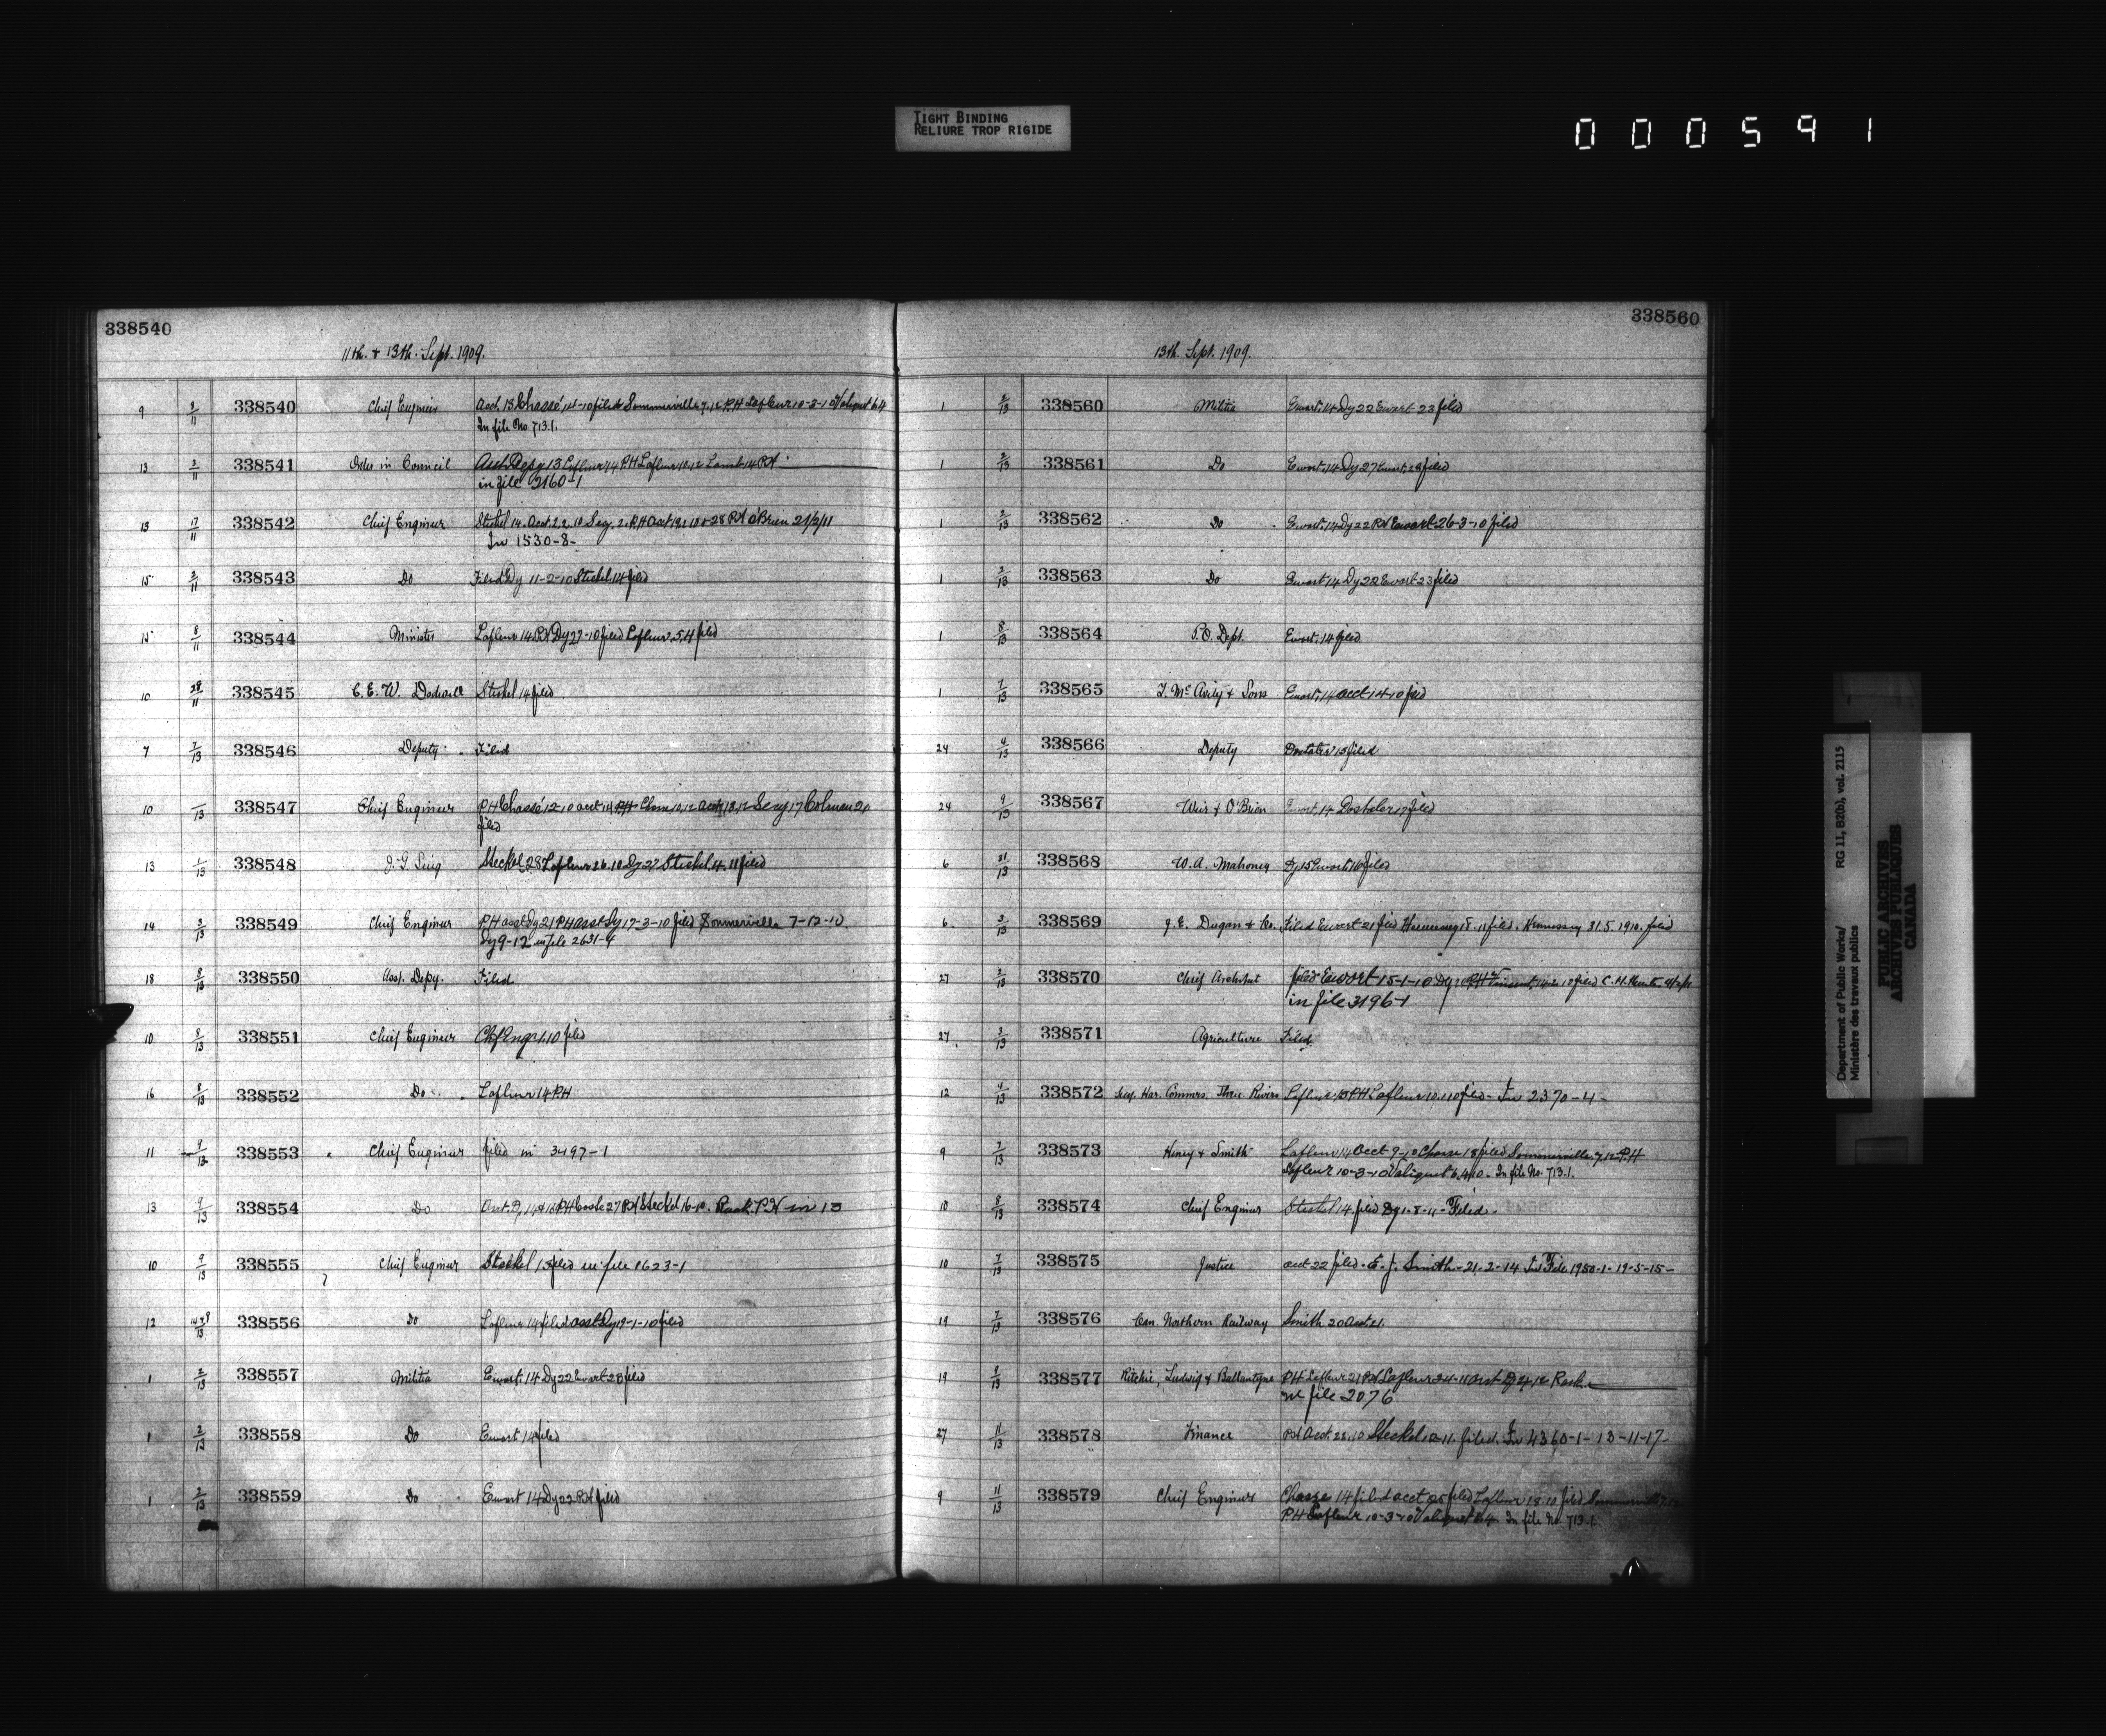 TIGHT BINDING
RELIURE TROP RIGIDE
000591
338540
11th. & 13th. Sept. 1909.
9 3/11 338540 Chief Engineer Acct. 13 Chassé 14-10 filed Sommerville 7.12 P.H Lafleur 10-3-10 Valiquet 6.4
In file No. 713.1.
13 3/11 338541 Order in Council Asst Depy 13 Lafleur 14 P.H Lafleur 10.12 Lamb 14 P.H
in file 2160-1
13 17/11 338542 Chief Engineer Steckel 14. Acct. 22.10 Secy. 2. P.H O'Brien 21/2/11
In 1530-8-
15 3/11 338543 Do Filed Dy 11-2-10 Steckel 14 filed
15 8/11 338544 Minister Lafleur 14 P.H Dy 27-10 filed Lafleur 5.4 filed
10 28/11 338545 C. E. W. Dodwell Steckel 14 filed
7 7/13 338546 Deputy Filed
10 /13 338547 Chief Engineer P.H Chassé 12-10 acct 14 P.H Secy 17 Colman 20
filed
13 1/13 338548 J. G. Sing Steckel 28 Lafleur 26.10 Dy 27 Steckel 4.11 filed
14 3/13 338549 Chief Engineer P.H asst Dy 21 P.H asst Dy 17-3-10 filed Sommerville 7-12-10
Dy 9-12 in file 2631-4
18 8/13 338550 Asst. Depy. Filed
10 8/13 338551 Chief Engineer Chf Engr 1.10 filed
16 8/13 338552 Do Lafleur 14 P.H
11 9/13 338553 Chief Engineer filed in 3497-1
13 9/13 338554 Do P.H Steckel 16-10. P.H in 13
10 9/13 338555 Chief Engineer Steckel 15 filed in file 1623-1
12 338556 Do Lafleur 14 filed asst Dy 19-1-10 filed
1 2/13 338557 Militia Ewart. 14 Dy 22 Ewart 23 filed
1 2/13 338558 Do Ewart 14 filed
1 2/13 338559 Do Ewart 14 Dy 22 P.H filed
338560
13th. Sept. 1909.
1 2/13 338560 Militia Ewart. 14 Dy 22 Ewart 23 filed
1 2/13 338561 Do Ewart. 14 Dy 27 Ewart. 28 filed
1 2/13 338562 Do Ewart. 14 Dy 22 P.H Ewart 26-3-10 filed
1 2/13 338563 Do Ewart 14 Dy 22 Ewart 23 filed
1 8/13 338564 P.O. Dept. Ewart. 14 filed
1 7/13 338565 T. McAvity & Sons Ewart. 14 acct 14-10 filed
24 4/13 338566 Deputy Dostaler 15 filed
24 9/13 338567 Weir & O'Brien Ewart. 14 Dostaler 17 filed
6 31/13 338568 W. A. Mahoney Dy 15 Ewart 16 filed
6 3/13 338569 J. E. Dugan & Co. Filed Ewart 21 filed Hennessey 18.11 filed. Hennessey 31.5.1910. filed
27 2/13 338570 Chief Architect filed Ewart 15-1-10 Dy P.H Vincent filed C. H.
in file 3196-1
27 3/13 338571 Agriculture Filed.
12 4/13 338572 Secy. Har. Commrs. Three Rivers Lafleur 15 P.H Lafleur 10.1.10 filed - In 2370-4-
9 7/13 338573 Henry & Smith Lafleur 14 Acct 9-10 Chasse 18 filed Sommerville 7.12 P.H
Lafleur 10-3-10 Valiquet 6.4.10. In file No. 713.1.
10 8/13 338574 Chief Engineer Steckel 14 filed Dy 1-8-11- Filed.
10 7/13 338575 Justice acct 22 filed. E. J. Smith - 21.2-14 In File 1950-1-19-5-15-
19 7/13 338576 Can. Northern Railway Smith 20
19 8/13 338577 Ritchie, Ludwig & Ballantyne P.H Lafleur 21 P.H Lafleur 24-11
in file 2076
27 11/13 338578 Finance P.H Acct. 28.10 Steckel 12-11. filed. In 4360-1-13-11-17-
9 11/13 338579 Chief Engineer Chasse 14 filed acct 25 filed Lafleur 18.10 filed Sommerville 7.12
P.H Lafleur 10-3-10 Valiquet 6.4. In file No. 713.1.
Department of Public Works/ RG 11, B2(b), vol. 2115
Ministère des travaux publics
PUBLIC ARCHIVES
ARCHIVES PUBLIQUES
CANADA